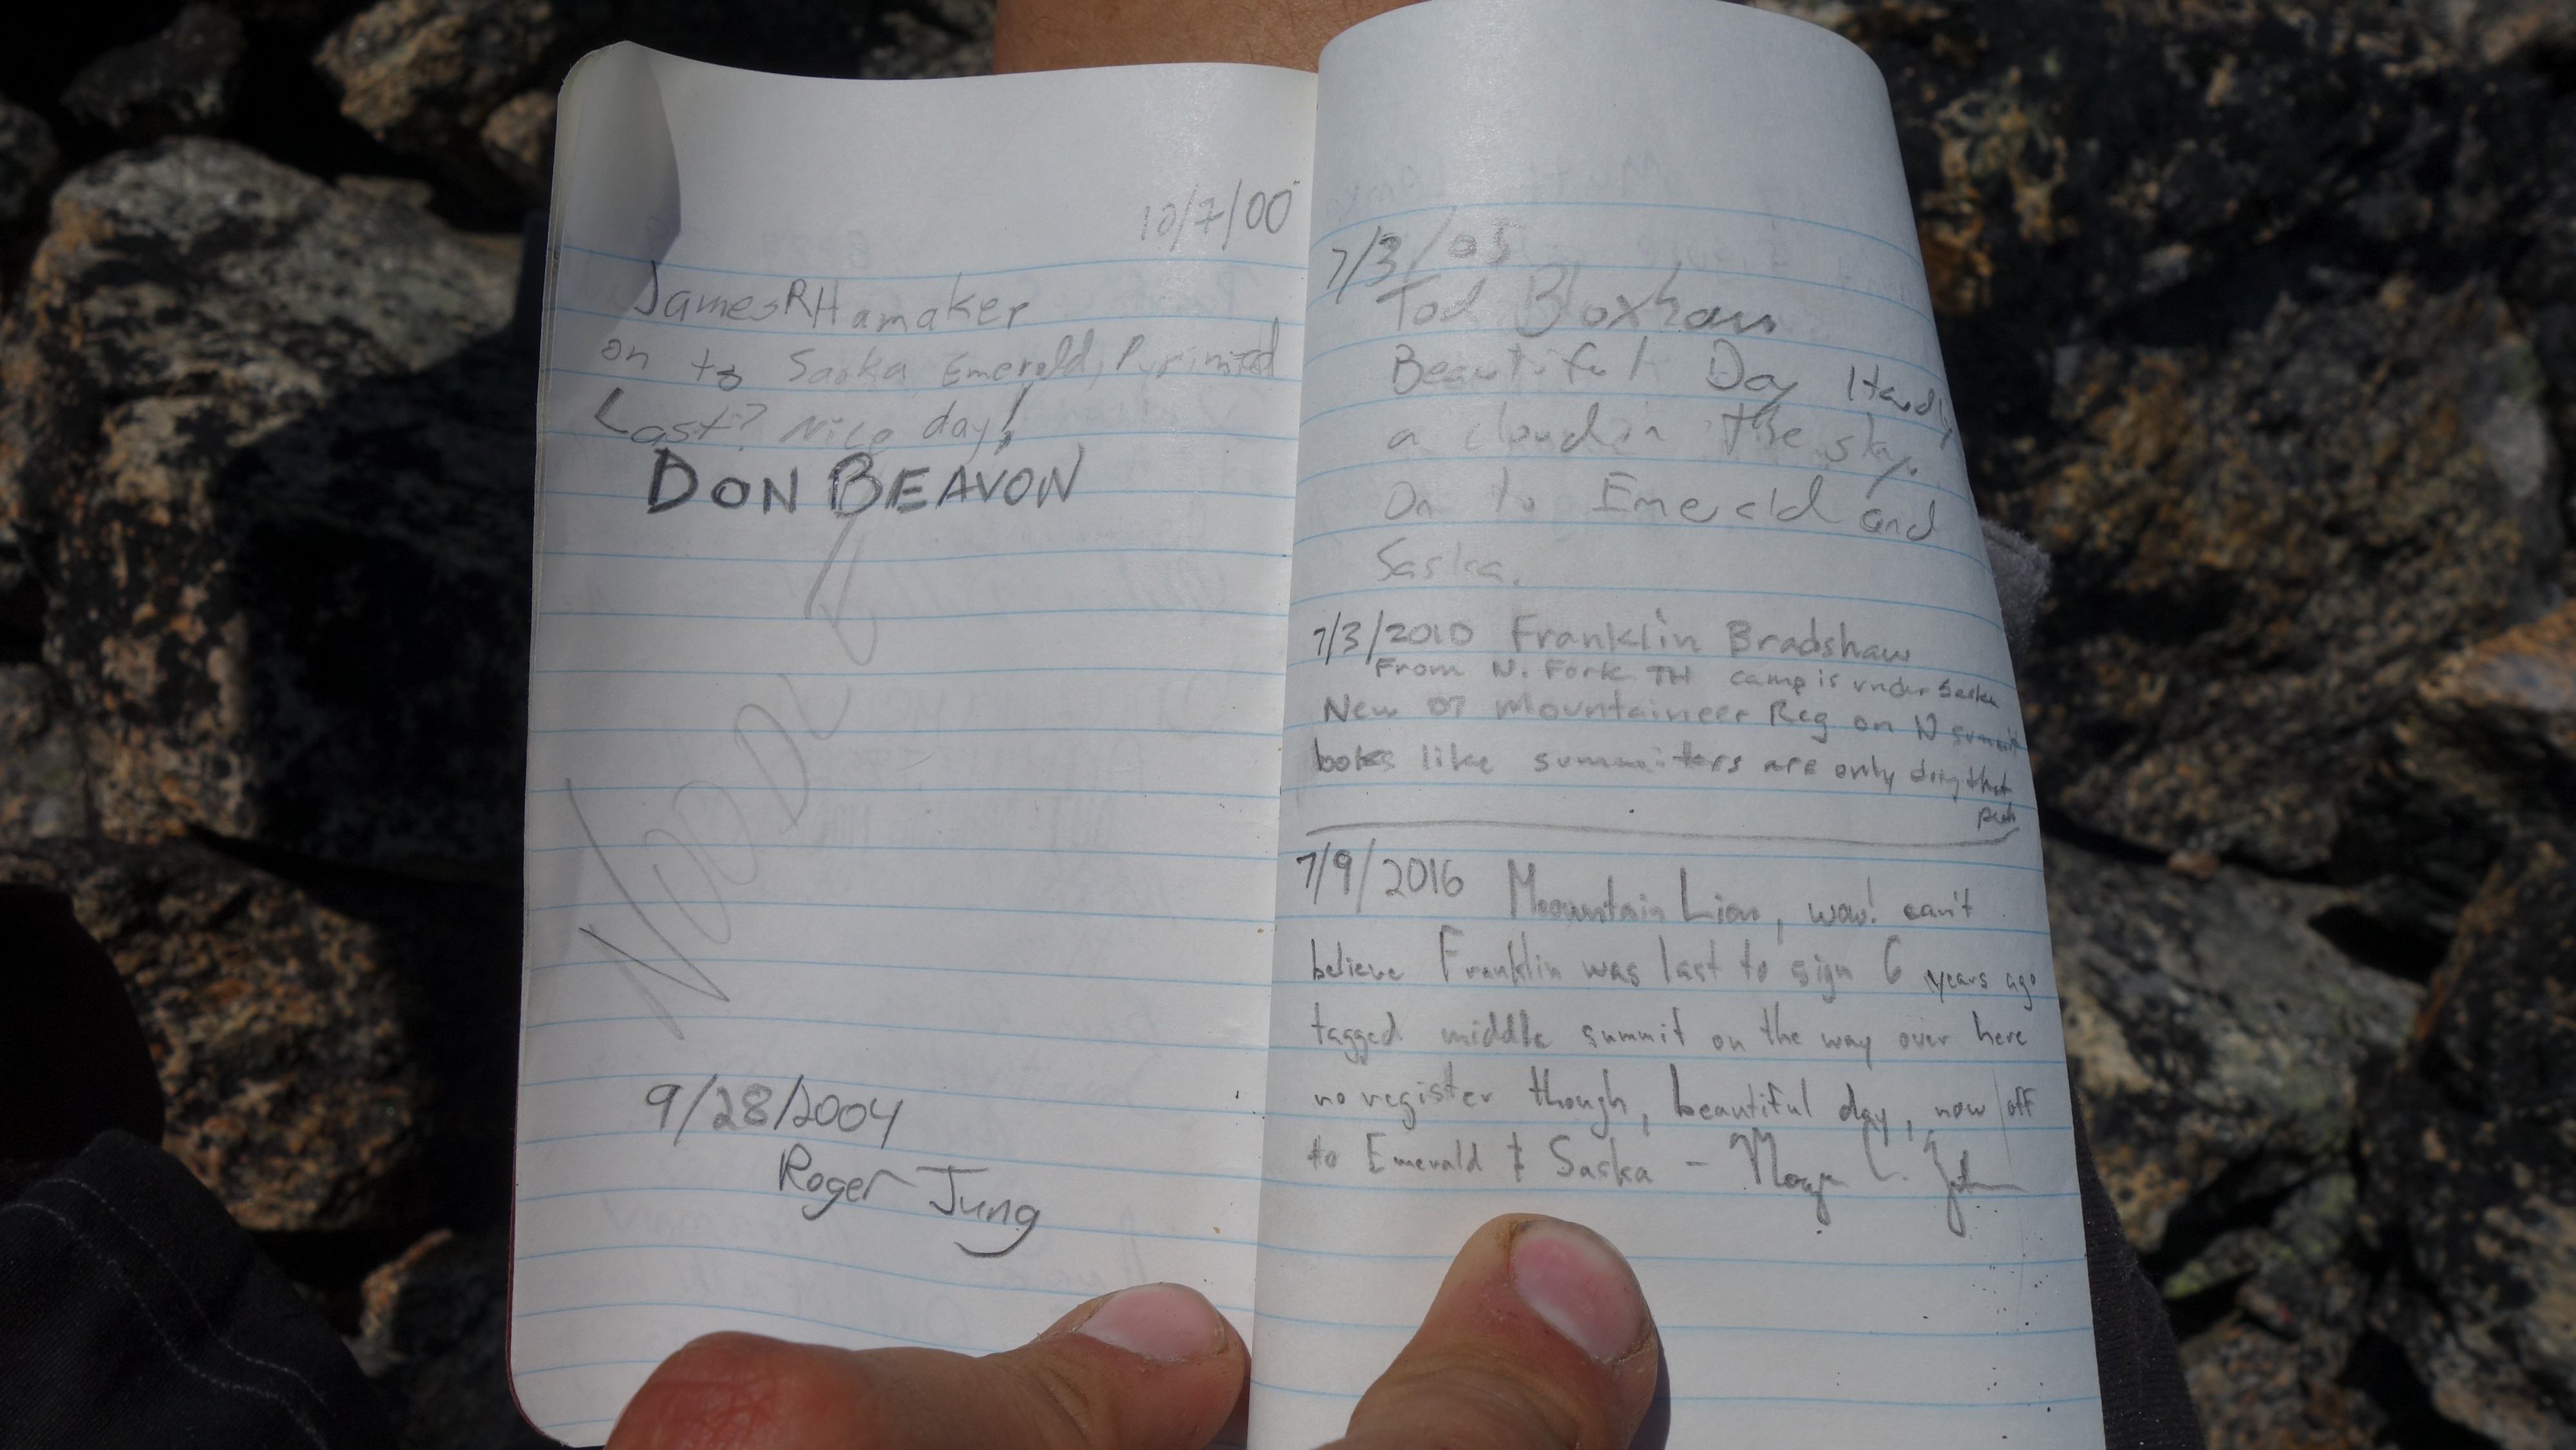 10/7/00
James R Hamaker
on to Saska, Emerald, Pyrimid
Last? Nice day!
DON BEAVON
9/28/2004
Roger Jung
7/3/05
Tod Bloxham
Beautiful Day Hardly
a cloud in the sky.
On to Emerald and
Saska.
7/3/2010 Franklin Bradshaw
From N. Fork TH camp is under Saska
New 07 Mountaineer Reg on N summit
looks like summiters are only doing that
peak
7/9/2016 Mountain Lion, wow! can't
believe Franklin was last to sign 6 years ago
tagged middle summit on the way over here
no register though, beautiful day, now off
to Emerald & Saska -